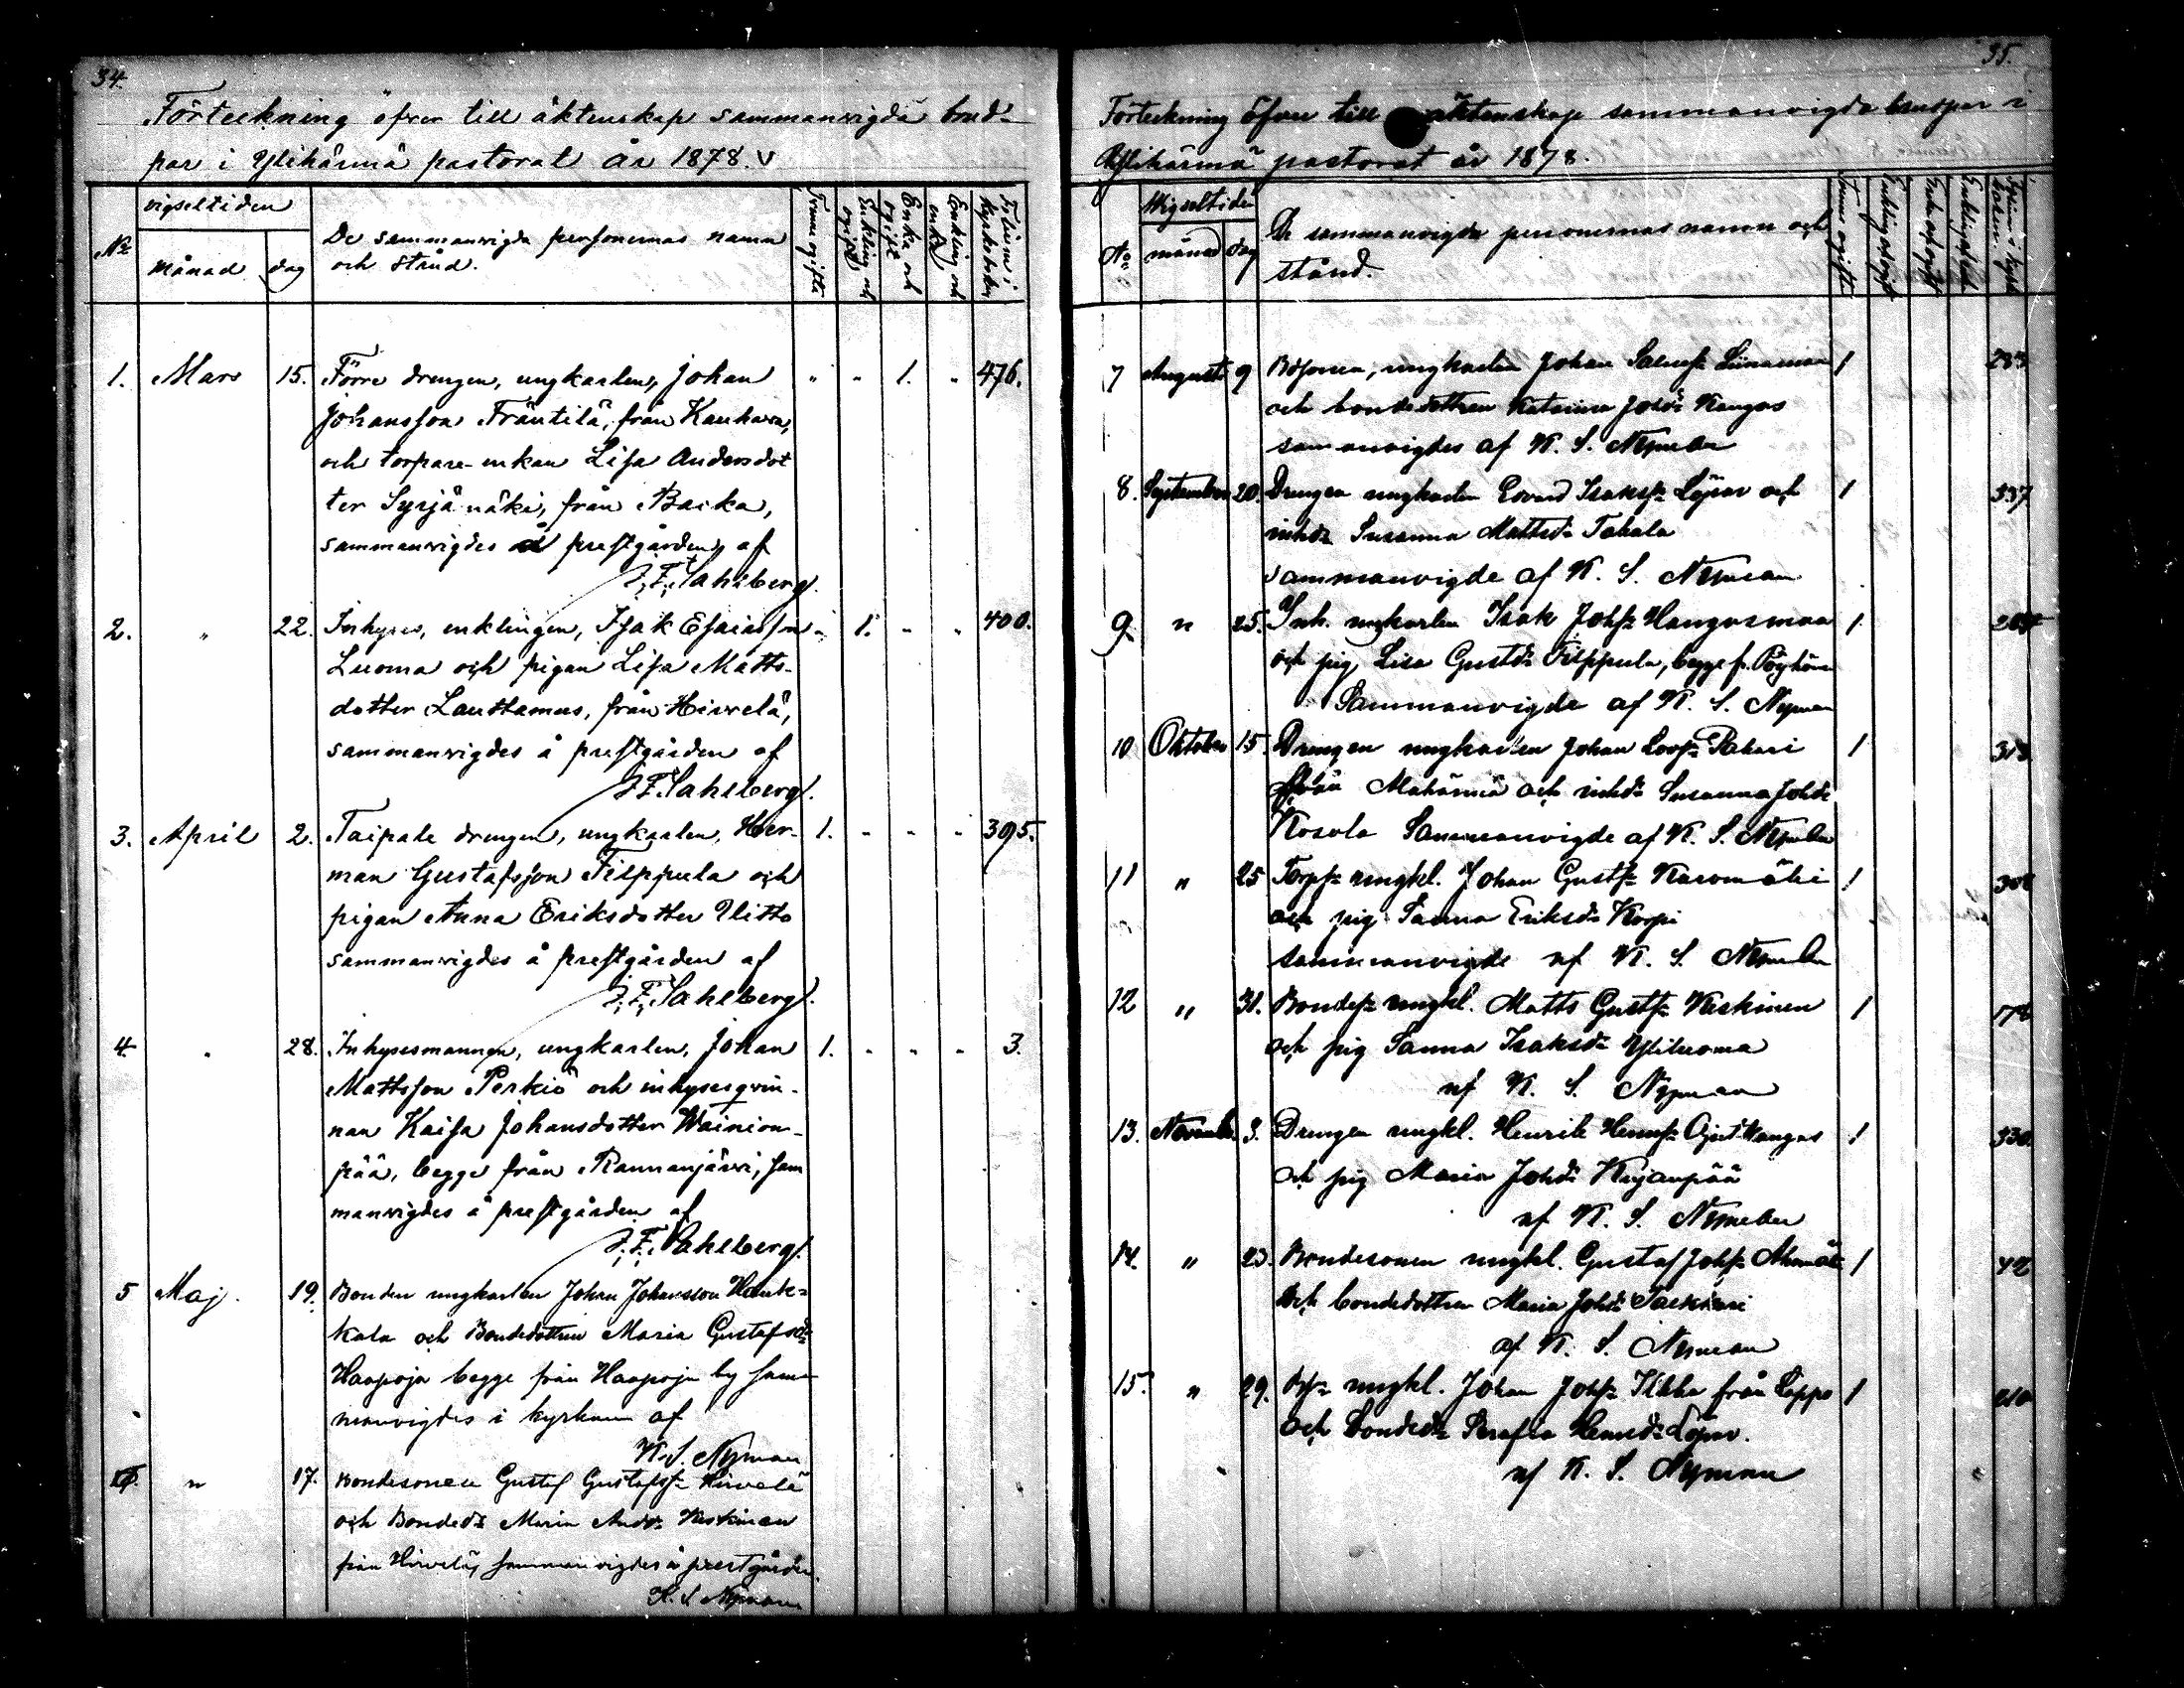 34.
Förteckning öfver till äktenskap sammanvigda brud-
par i Ylihärmä pastorat år 1878.
№
vigseltiden
månad
dag
De sammanvigda personernas namn
och stånd.
Tvenne ogifta
Enkling och ogift
Enka och ogift
Enkling och enka
Folium i kyrkoboken
1. Mars 15. Förre drengen, ungkarlen, Johan " " 1. " 476.
Johansson Fräntilä, från Kauhava,
och torpare-enkan Lisa Andersdot
ter Syrjämäki, från
sammanvigdes å prestgården, af
J. F. Sahlberg.
2. " 22. Inhyses, enklingen, Isak Esaiasson " 1. " " 400.
Luoma och pigan Lisa Matts-
dotter Lauttamus, från Hirvelä,
sammanvigdes å prestgården af
J. F. Sahlberg.
3. April 2. Taipale drengen, ungkarlen, Her- 1. " " " 395.
man Gustafsson Filppula och
pigan Anna Eriksdotter Ylitto
sammanvigdes å prestgården af
J. F. Sahlberg.
4. " 28. Inhysesmannen, ungkarlen, Johan 1. " " " 3.
Mattsson Perkiö och inhysesqvin-
nan Kaisa Johansdotter Wainion-
pää, begge från Kannanjärvi, sam
manvigdes å prestgården af
J. F. Sahlberg.
5 Maj. 19. Bonden ungkarlen Johan Johansson
kala och Bondedottren Maria Gustafsdr
Haapoja begge från Haapoja by sam-
manvigdes i kyrkan af
K. S. Nyman
6. " 17. Bondesonen Gustaf Gustafss: Hirvelä
och Bondedr Maria Andr: Keskinen
från Hirvelä, sammanvigdes å prestgården.
K. S. Nyman
35.
Förteckning öfver till äktenskap sammanvigda brudpar i
Ylihärmä pastorat år 1878.
No
Wigseltiden
månad
dag
De sammanvigda personernas namn och
stånd.
7 Augusti 9 ungkarlen Johan 1 283
och bondedottren Katarina Johdr Kangas
sammanvigdes af K. S. Nyman
8. September 20. Drengen ungkarlen Edvard Isakss: Löjar och 1 337
inhdr Susanna Mattsdr Takala
sammanvigde af K. S. Nyman
9. " 25. Inh. ungkarlen Isak Johss: Hangasmaa 1
och pig. Lisa Gustdr Filppula, begge fr.
Sammanvigde af K. S. Nyman
10 Oktober 15. Drengen ungkarlen Johan 1 313
från och inhdr Susanna Johdr
Kosola Sammanvigde af K. S. Nyman
11 " 25 Torps: ungkl. Johan Gustss: 1
och pig Sanna Eriksdr Korpi
sammanvigde af K. S. Nyman
12 " 31. Bondes: ungkl. Matts Gustss: Keskinen 1
och pig Sanna Isaksdr Yliluoma
af K. S. Nyman
13. November 3. Drengen ungkl. Henrik Henrss: 1 330.
och pig Maria Johdr Kujanpää
af K. S. Nyman
14. " 23. Bondesonen ungkl. Gustaf Johss: 1 42
och bondedottren Maria Johdr
af K. S. Nyman
15. " 29. ungkl. Johan Johss: Ikkla från Lappo 1 210
och Bondedr Serafia Henrsdr Löjar.
af K. S. Nyman